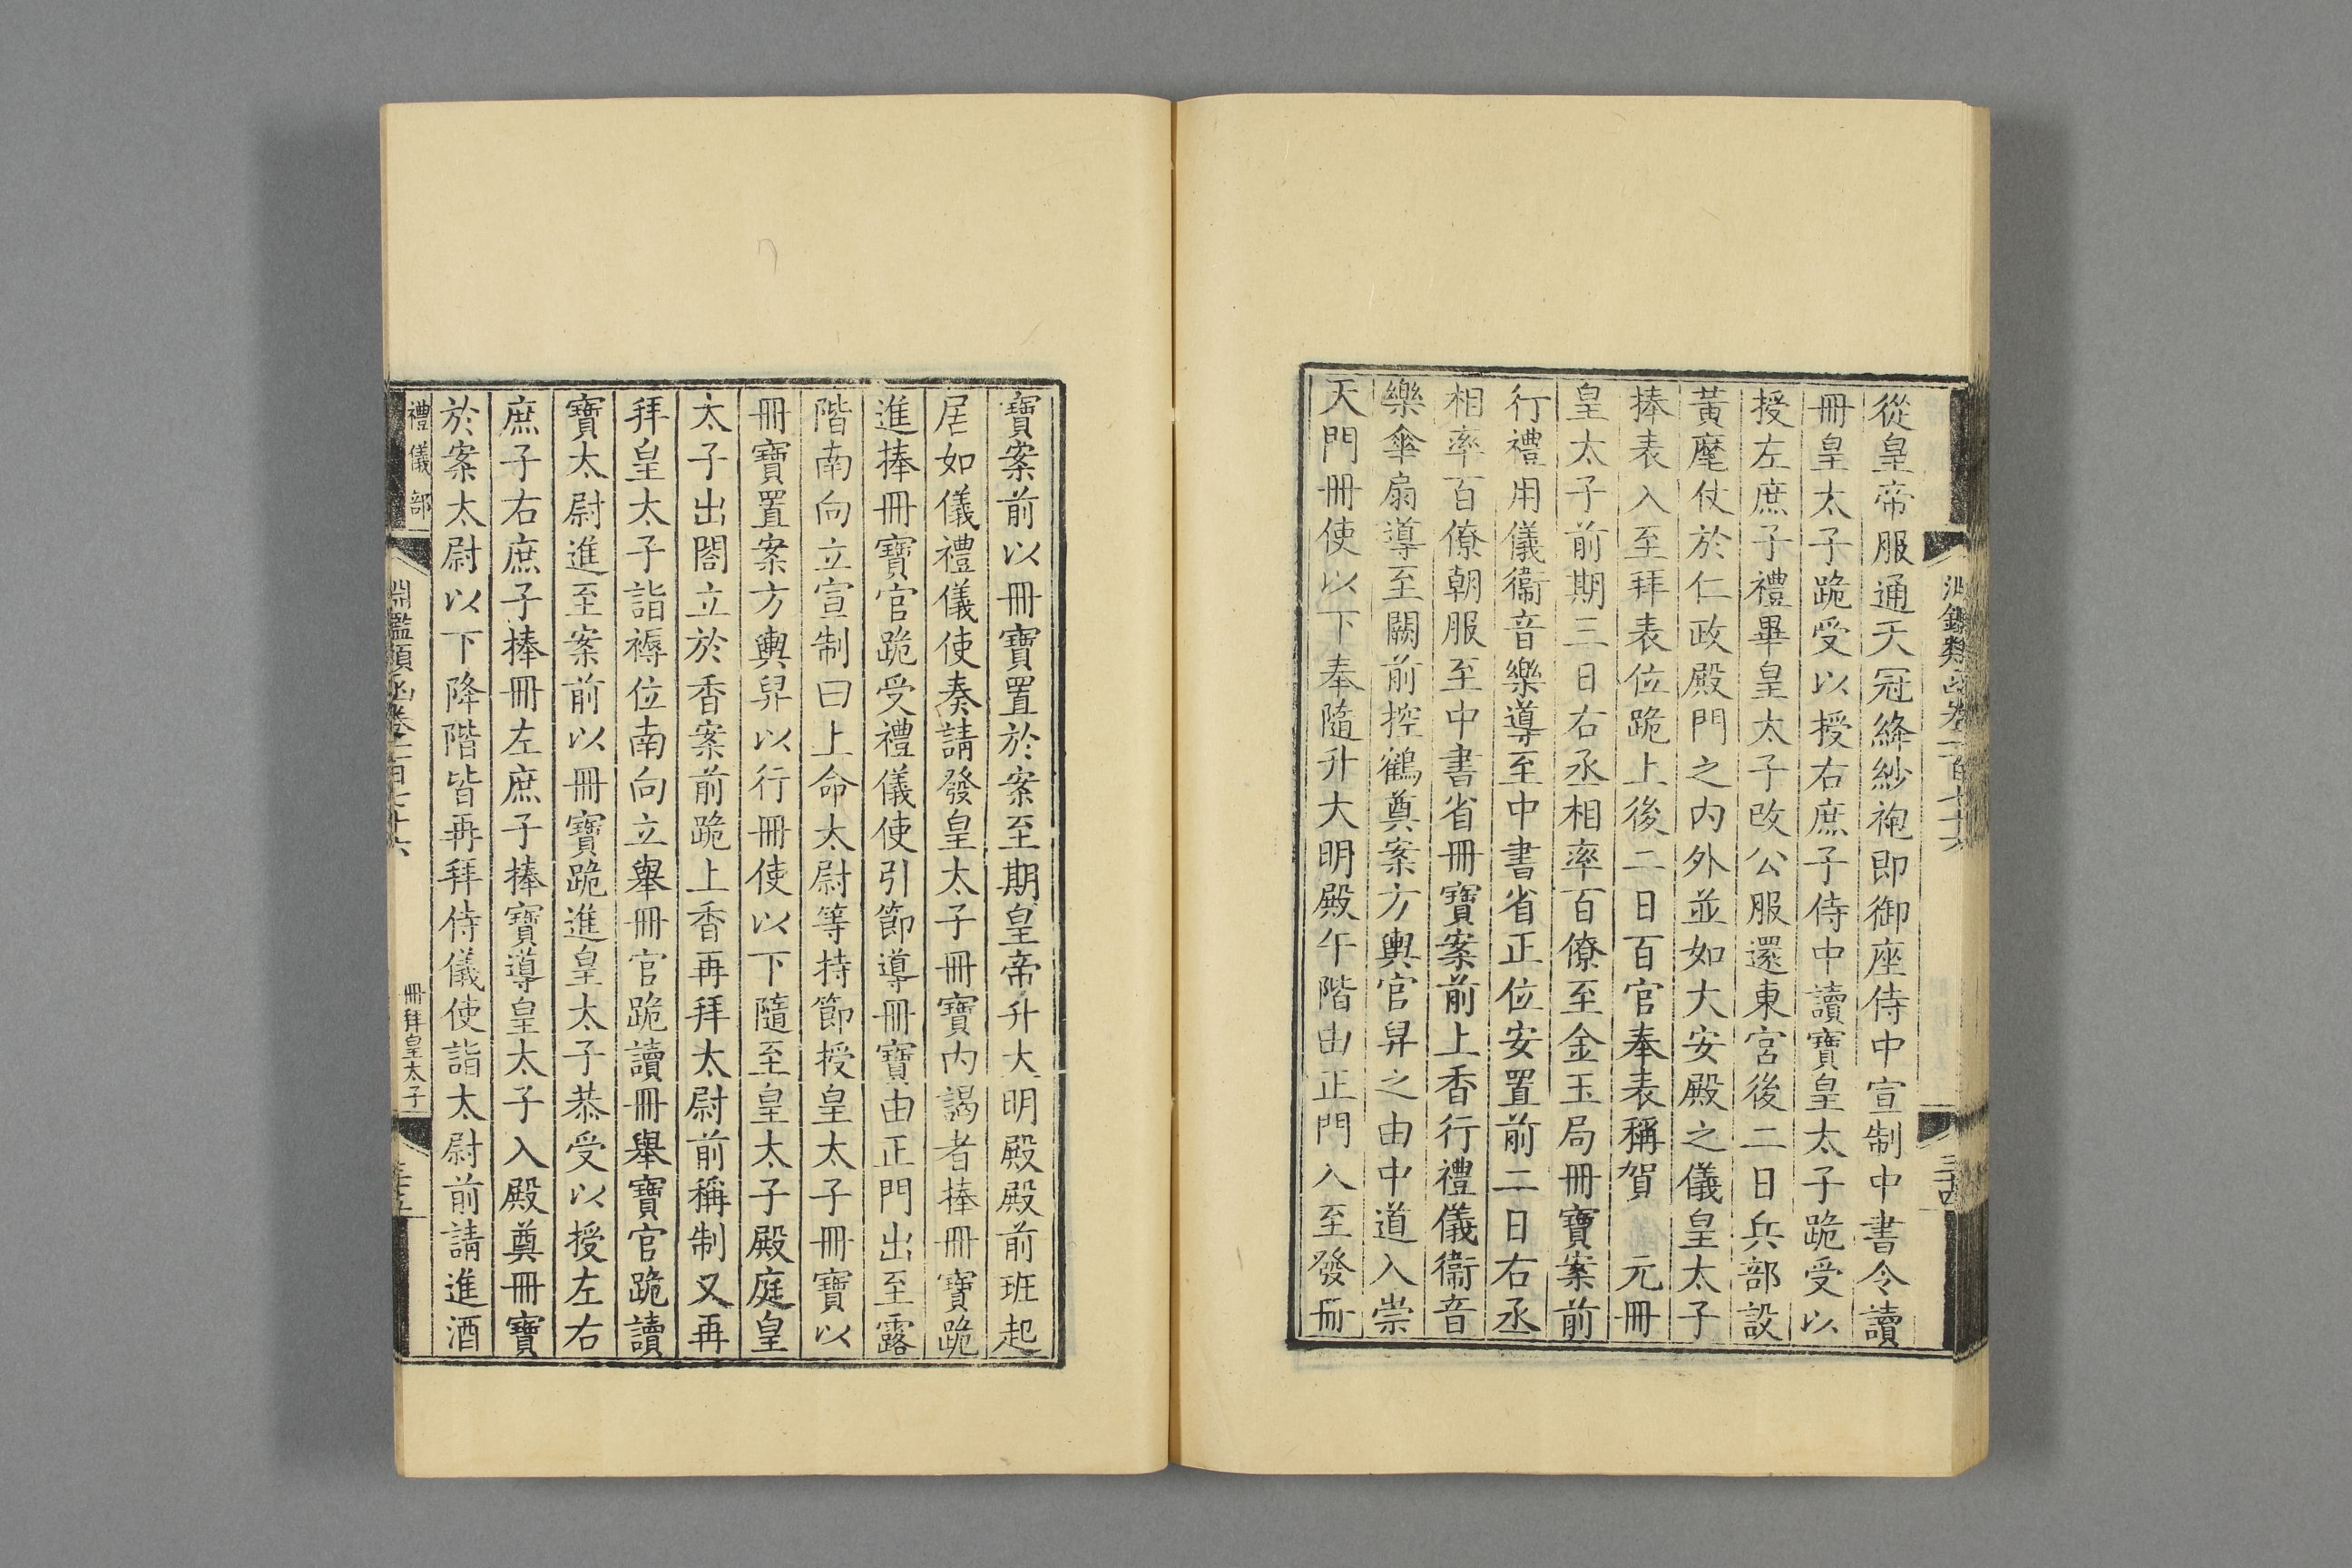 從皇帝服通天冠絳紗袍即御座侍中宣制中書令讀
冊皇太子跪受以授右庶子侍中讀寶皇太子跪受以
授左庶子禮畢皇太子改公服還東宮後二日兵部設
黃麾仗於仁政殿門之内外並如大安殿之儀皇太子
捧表入至拜表位跪上後二日百官奉表稱賀 元冊
皇太子前期三日右丞相率百僚至金玉局冊寶案前
行禮用儀衞音樂導至中書省正位安置前二日右丞
相率百僚朝服至中書省冊寶案前上香行禮儀衞音
樂傘扇導至闕前控鶴奠案方輿官舁之由中道入崇
天門冊使以下奉隨升大明殿午階由正門入至發冊
寶案前以冊寶置於案至期皇帝升大明殿殿前班起
居如儀禮儀使奏請發皇太子冊寶内謁者捧冊寶跪
進捧冊寶官跪受禮儀使引節導冊寶由正門出至露
階南向立宣制曰上命太尉等持節授皇太子冊寶以
冊寶置案方輿舁以行冊使以下隨至皇太子殿庭皇
太子出閤立於香案前跪上香再拜太尉前稱制又再
拜皇太子詣褥位南向立舉冊官跪讀冊舉寶官跪讀
寶太尉進至案前以冊寶跪進皇太子恭受以授左右
庶子右庶子捧冊左庶子捧寶導皇太子入殿奠冊寶
於案太尉以下降階皆再拜侍儀使詣太尉前請進酒
禮儀部
淵鑑類函卷一百七十六
冊拜皇太子